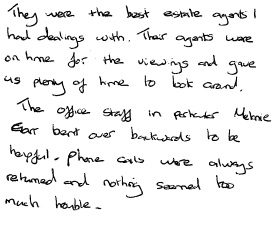 They were the best estate agents I
had dealings with. Their agents were
on time for the viewings and gave
us plenty of time to look around.
The office staff in particular Melanie
bent over backwards to be
helpful. Phone calls were always
returned and nothing seemed too
much trouble.